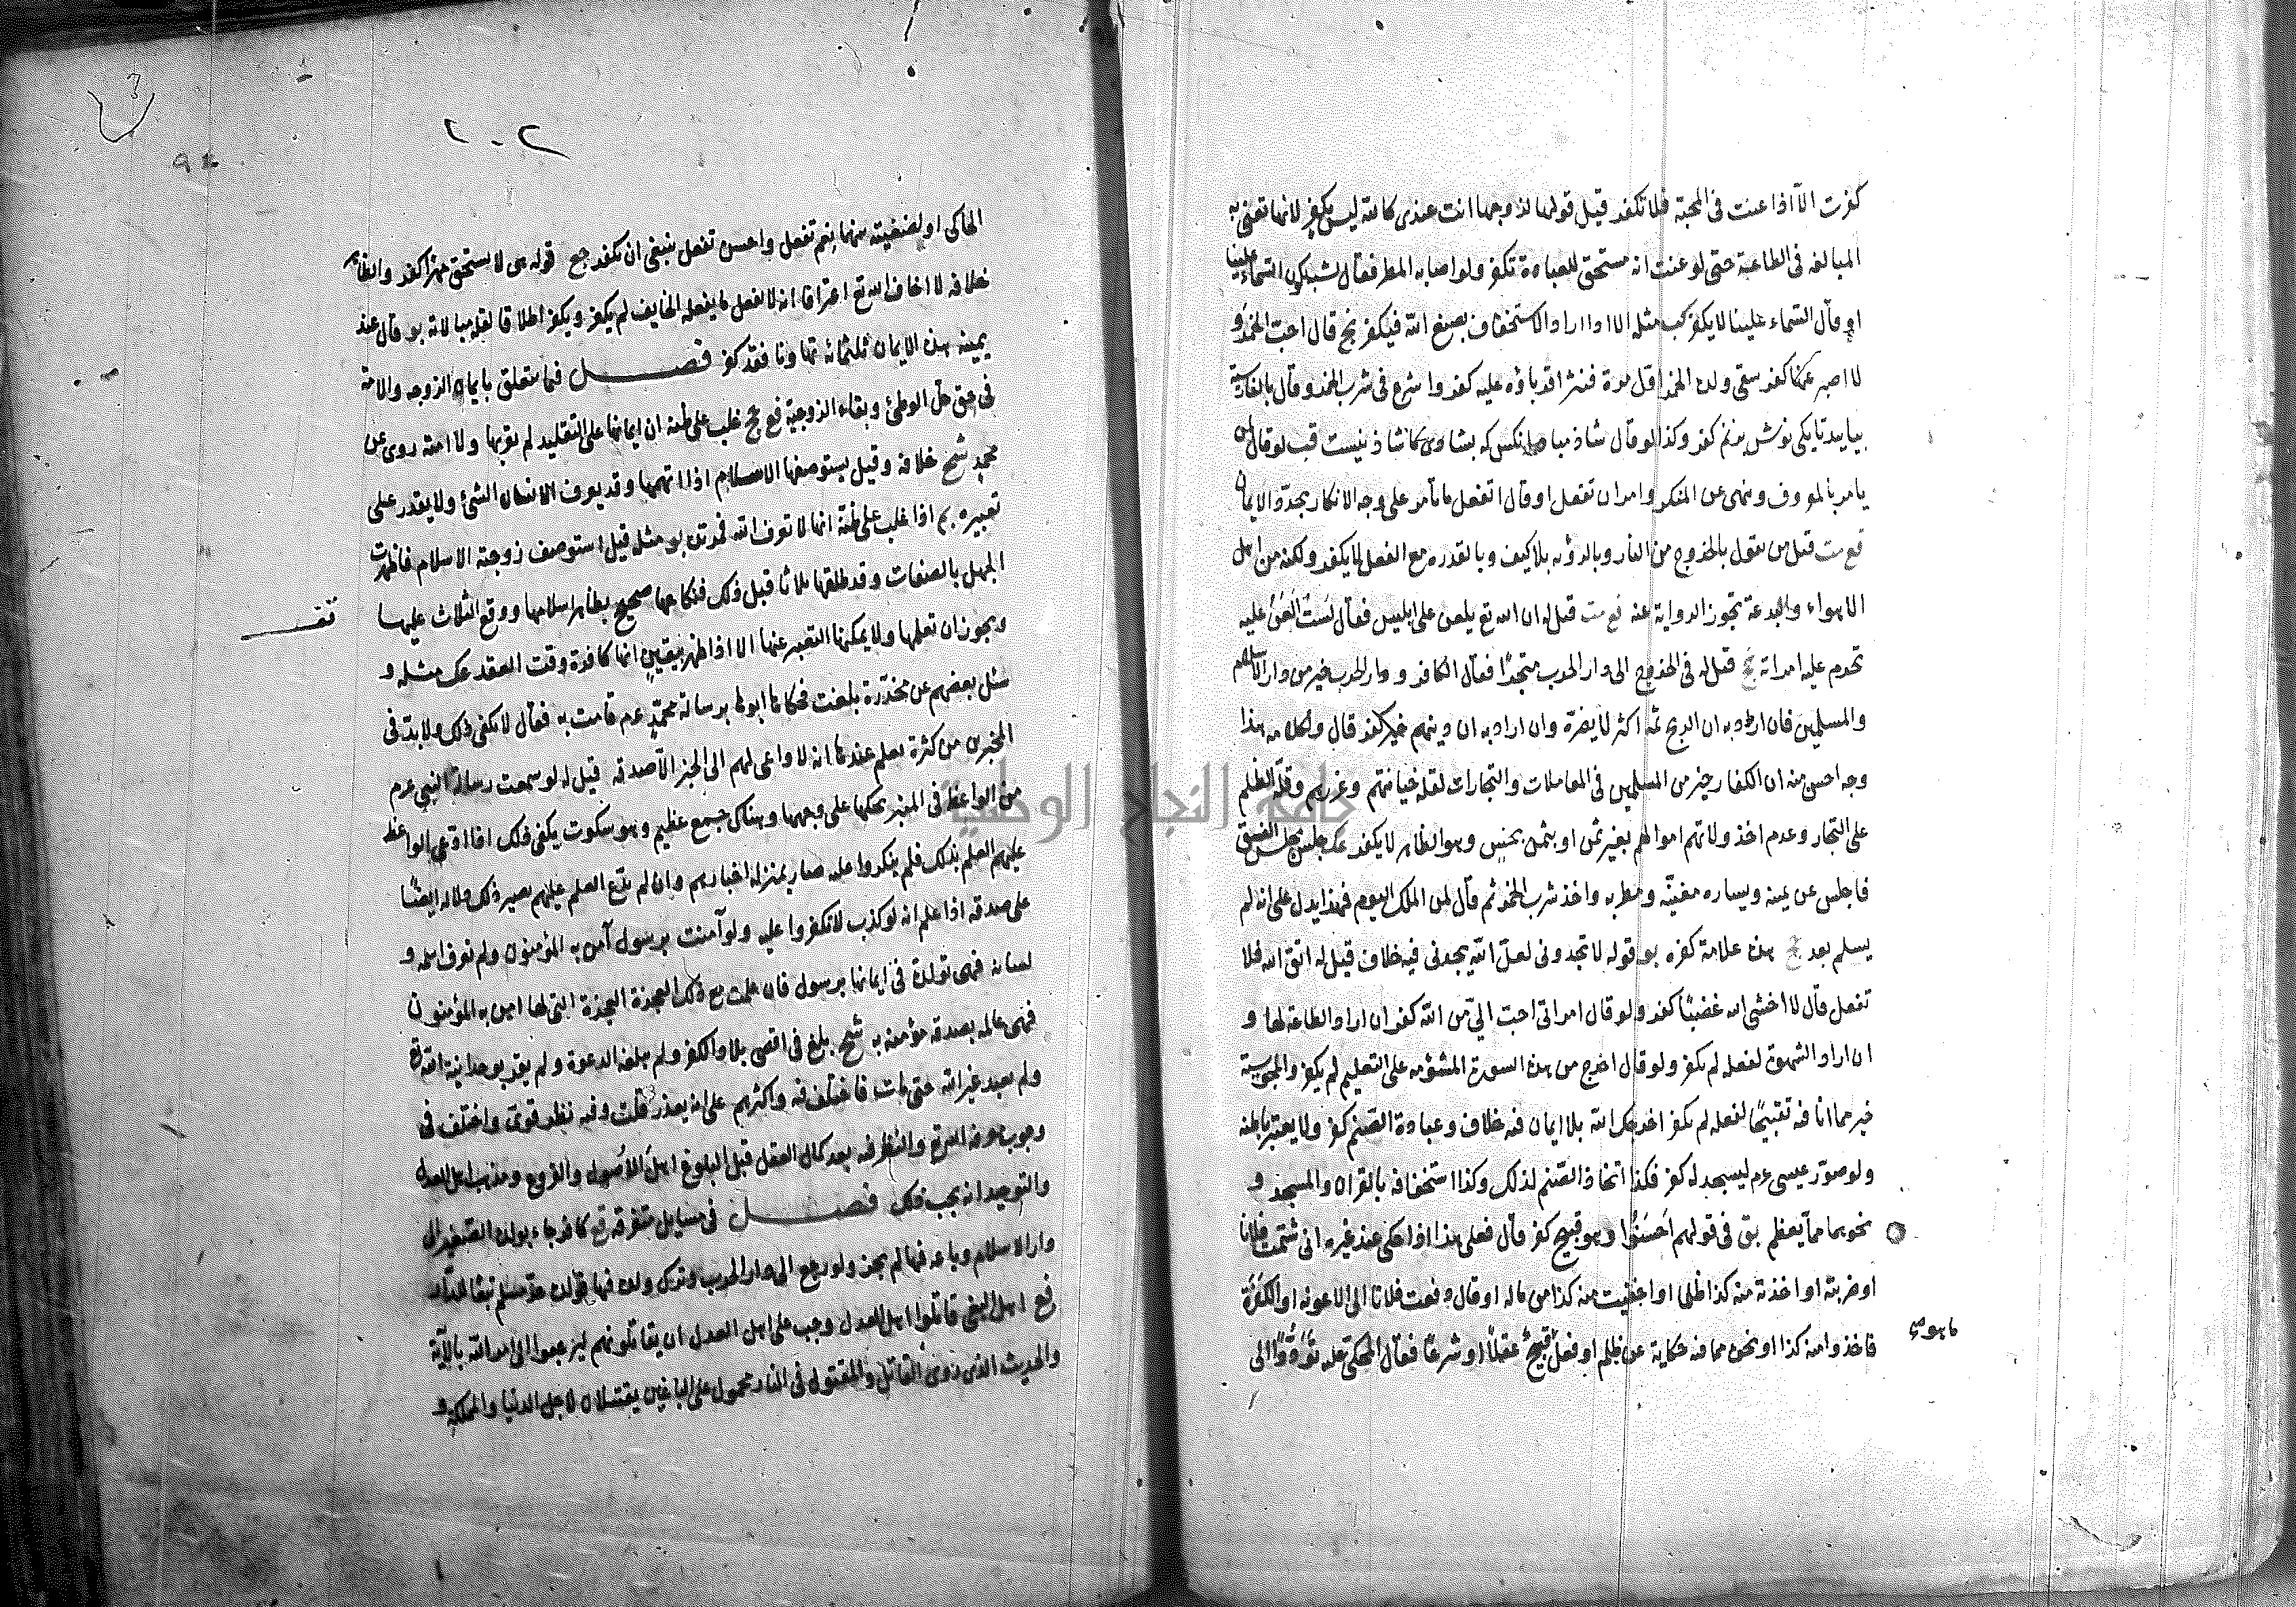 كفرت الا اذا عنت فى المحبة فلا تكفر قيل قولها لزوجها انت عندى كالله ليس بكفر لانها تعنى به
المبالغة فى الطاعة حتى لو عنت انه مستحق للعبادة تكفر ولو اصابه المطر فقال السماء علينا
او قال السماء علينا لا يكفر مثله الا اذا اراد الاستخفاف بصنع الله فيكفر نج قال احب الخمر و
لا اصبر عنها كفر سقى ولده الخمر اول مرة فنثر اقرباؤه عليه كفروا شرع فى شرب الخمر وقال بالفارسية
بياييد تا يكى نوش كفر وكذا لو قال شاذ مباد انكس كه بشادى ما شاذ نيست قب لو قال لمن
يامر بالمعروف وينهى عن المنكر وامر ان تفعل او قال اتفعل ما تأمر على وجه الانكار يجدد الايمان
قع مت قيل من يقول بالخروج من النار وبالرؤية بلا كيف وبالقدرة مع الفعل لا يكفر ولكنه من اهل
الاهواء والبدعة تجوز الرواية عنه قع مت قيل له ان الله تع يلعن على ابليس فقال لست العن عليه
تحرم عليه امراته نج قيل له فى الخروج الى دار الحرب متجرا فقال الكافر ودار الحرب خير من دار الاسلام
والمسلمين فان اراد به ان الربح ثمه اكثر لا يضره وان اراد به ان دينهم خير كفر قال ولكلامه هذا
وجه احسن منه ان الكفار خير من المسلمين فى المعاملات والتجارات لقلة خيانتهم وغدرهم وقلة الظلم
على التجار وعدم اخذ ولاتهم اموالهم بغير ثمن او بثمن بخس وهو الظاهر لا يكفر عك جلس مجلس الفسق
فاجلس عن يمينه ويساره مغنية ومطربه واخذ شرب الخمر ثم قال لمن الملك اليوم فهذا يدل على انه لم
يسلم بعد نج هذه علامة كفره بو قوله لا تجدونى لعل الله يجدنى فيه خلاف قيل له اتق الله فلا
تفعل قال لا اخشى الله غضبا كفر ولو قال امراتى احب الى من الله كفر ان اراد الطاعة لها و
ان اراد الشهوة لفعله لم يكفر ولو قال اخرج من هذه السورة المشؤمه على التعليم لم يكفر والمجوسية
خير مما انا فيه تقبيحا لفعله لم يكفر اخرجك الله بلا ايمان فيه خلاف وعبادة الصنم كفر ولا يعتبر باطنه
ولو صور عيسى عم ليسجد له كفر فكذا اتخاذ الصنم لذلك وكذا استخفافه بالقران والمسجد و
نحوهما مما يعظم بق فى قولهم احسنوا وهو قبيح كفر قال فعلى هذا اذا حكى عند غيره انى شتمت فلانا
او ضربته او اخذته منه كذا ظلما او اخفيت منه كذا من ماله او قال دفعت فلانا الى الاعونه او الكفرة
فاخذوا منه كذا او نحوه مما فيه حكاية عن ظلم او فعل قبيح عقلا او شرعا فقال المحكى عليه تودوا الى
ما هو
٢٠١
٩٤
الحاكى او لضغينته منها نعم تفعل واحسن تفعل ينبغى ان يكفر جع قوله من لا يستحق بهذا كفر والظاهر
خلافه لا اخاف الله تع اعترافا انه لا يفعل ما يفعله الخايف لم يكفر ويكفر اطلاقا لقلة مبالاته بو قال عند
يمينه هذه الايمان ثلثمائة تهاونا فقد كفر فصل فيما يتعلق بايمان الزوجه والامة
فى حق حل الوطئ وبقاء الزوجية قع نج غلب على ظنه ان ايمانها على التقليد لم يقربها ولا امته روى عن
محمد شح خلافه وقيل يستوصفها الاسلام اذا اتهمها وقد يعرف الانسان الشئ ولا يقدر على
تعبيره بم اذا غلب على ظنه انها لا تعرف الله فمرتدة بو مثله قيل استوصف زوجته الاسلام فاظهرت
الجهل بالصفات وقد طلقها ثلاثا قبل ذلك فنكاحها صحيح بظاهر اسلامها ووقع الثلاث عليها
ويجوز ان تعلمها ولا يمكنها التعبير عنها الا اذا ظهر بيقين انها كافرة وقت العقد عك مثله و
سئل بعضهم عن مخدرة بلغت فحكا لها ابوها برسالة محمد عم فآمنت به فقال لا يكفى ذلك ولا بد فى
المخبرين من كثرة يعلم عندها انه لا داعى لهم الى الخبر الا صدقه قيل له لو سمعت رسالة النبى عم
من الواعظ فى المنبر يحكها على وجهها وهناك جمع عظيم وهو سكوت يكفى ذلك اذا ادعى الواعظ
عليهم العلم بذلك فلم ينكروا عليه صار بمنزلة اخبارهم وان لم يدع العلم عليهم يصير ذلك دلاله ايضا
على صدقه اذا علم انه لو كذب لانكروا عليه ولو آمنت برسول آمن به المؤمنون ولم تعرف اسمه و
لسانه فهى مقلدة فى ايمانها برسول فان علمت مع ذلك المعجزة المعجزة التى لها امن به المؤمنون
فهى عالمه بصدقه مؤمنه به شح بلغ فى اقصى بلاد الكفر ولم يبلغه الدعوة ولم يقر بوحدانية الله تع
ولم يعبد غير الله حتى مات فاختلف فيه واكثرهم على انه يعذر قلت وفيه نظر قوى واختلف فى
وجوب معرفة الشرع والنظر فيه بعد كمال العقل قبل البلوغ اهل الاصول والفروع ومذهب اهل العدل
والتوحيد انه يجب فكن فصل فى مسايل متفرقه قع كافر جاء بولده الصغير الى
دار الاسلام وباعه فيها لم يجز ولو رجع الى دار الحرب وترك ولده فيها فولده حر مسلم تبعا للدار
قع اهل البغى قاتلوا اهل العدل وجب على اهل العدل ان يقاتلونهم ليرجعوا الى امر الله بالآية
والحديث الذى روى القاتل والمقتول فى النار محمول على الباغين يقتتلان لاجل الدنيا والمملكة و
جامعة النجاح الوطنية